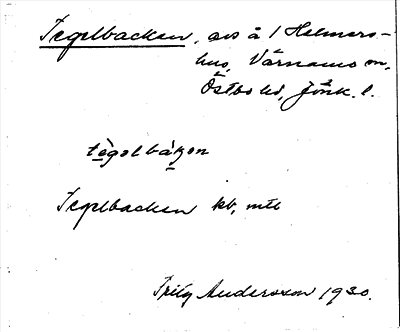 Tegelbacken, avs å 1 Helmers-
hus, Värnamo sn,
Östbo hd, Jönk. l.
tègəlbákən
Tegelbacken kb, mtb
Fritz Andersson 1930.